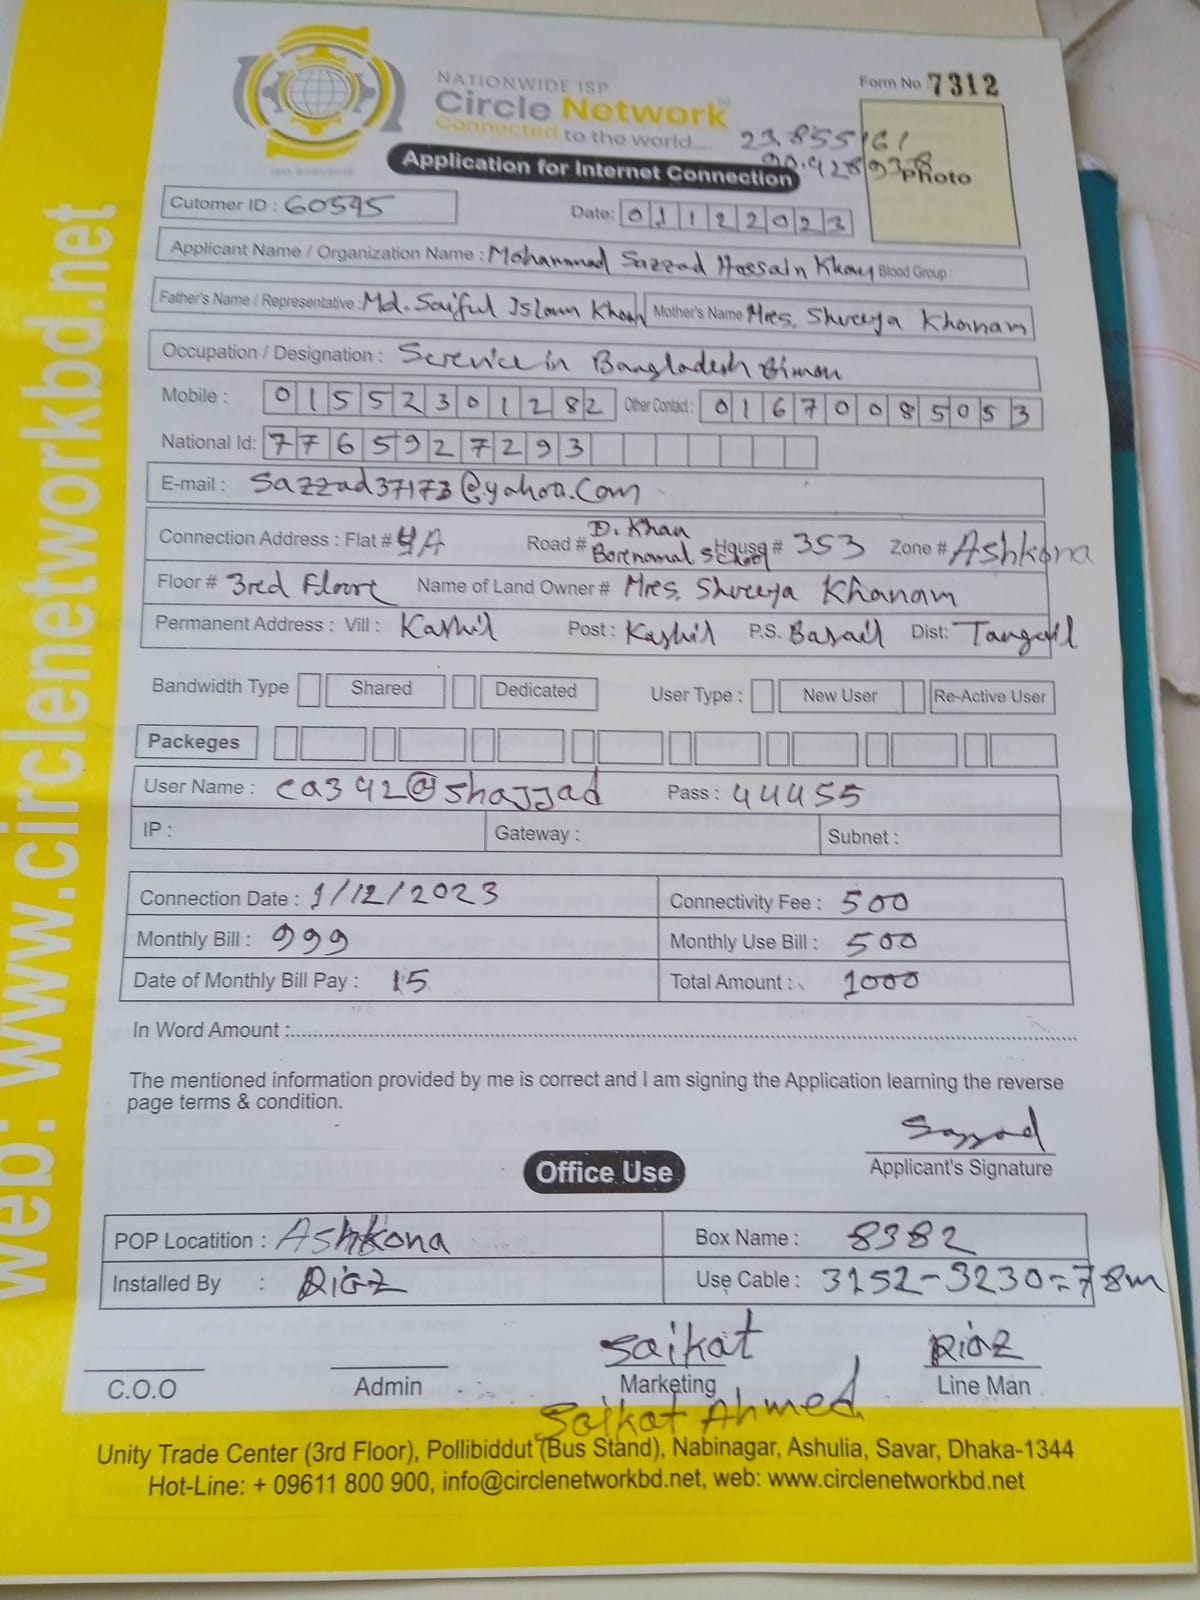 NATIONWIDE ISP
Circle Network
Connected to the world....
ISO 9001:2015
Form No 7312
23.855161
90.4289378
Photo
Application for Internet Connection
Cutomer ID : 60595
Date: 01122023
Applicant Name / Organization Name : Mohammad Sazzad Hossain Khan Blood Group :
Father's Name / Representative : Md. Saiful Islam Khan Mother's Name Mrs. Shureya Khanam
Occupation / Designation : Service in Bangladesh Biman
Mobile : 01552301282 Other Contact : 01670085053
National Id: 7765927293
E-mail : Sazzad37173@yahoo.Com
Connection Address : Flat # 4A Road # D. Khan School House # 353 Zone # Ashkona
Floor # 3rd Floor Name of Land Owner # Mrs. Shureya Khanam
Permanent Address : Vill : Kashil Post : Kashil P.S. Basail Dist: Tangail
Bandwidth Type Shared Dedicated User Type : New User Re-Active User
Packeges
User Name : ca392@shajjad Pass : 44455
IP : Gateway : Subnet :
Connection Date : 1/12/2023 Connectivity Fee : 500
Monthly Bill : 999 Monthly Use Bill : 500
Date of Monthly Bill Pay : 15 Total Amount : 1000
In Word Amount :
The mentioned information provided by me is correct and I am signing the Application learning the reverse
page terms & condition.
Sazzad
Applicant's Signature
Office Use
POP Locatition : Ashkona Box Name : 8382
Installed By : RiaZ Use Cable : 3152-3230=78m
Saikat RiaZ
C.O.O Admin Marketing Line Man
Saikat Ahmed
Unity Trade Center (3rd Floor), Pollibiddut (Bus Stand), Nabinagar, Ashulia, Savar, Dhaka-1344
Hot-Line: + 09611 800 900, info@circlenetworkbd.net, web: www.circlenetworkbd.net
web: www.circlenetworkbd.net